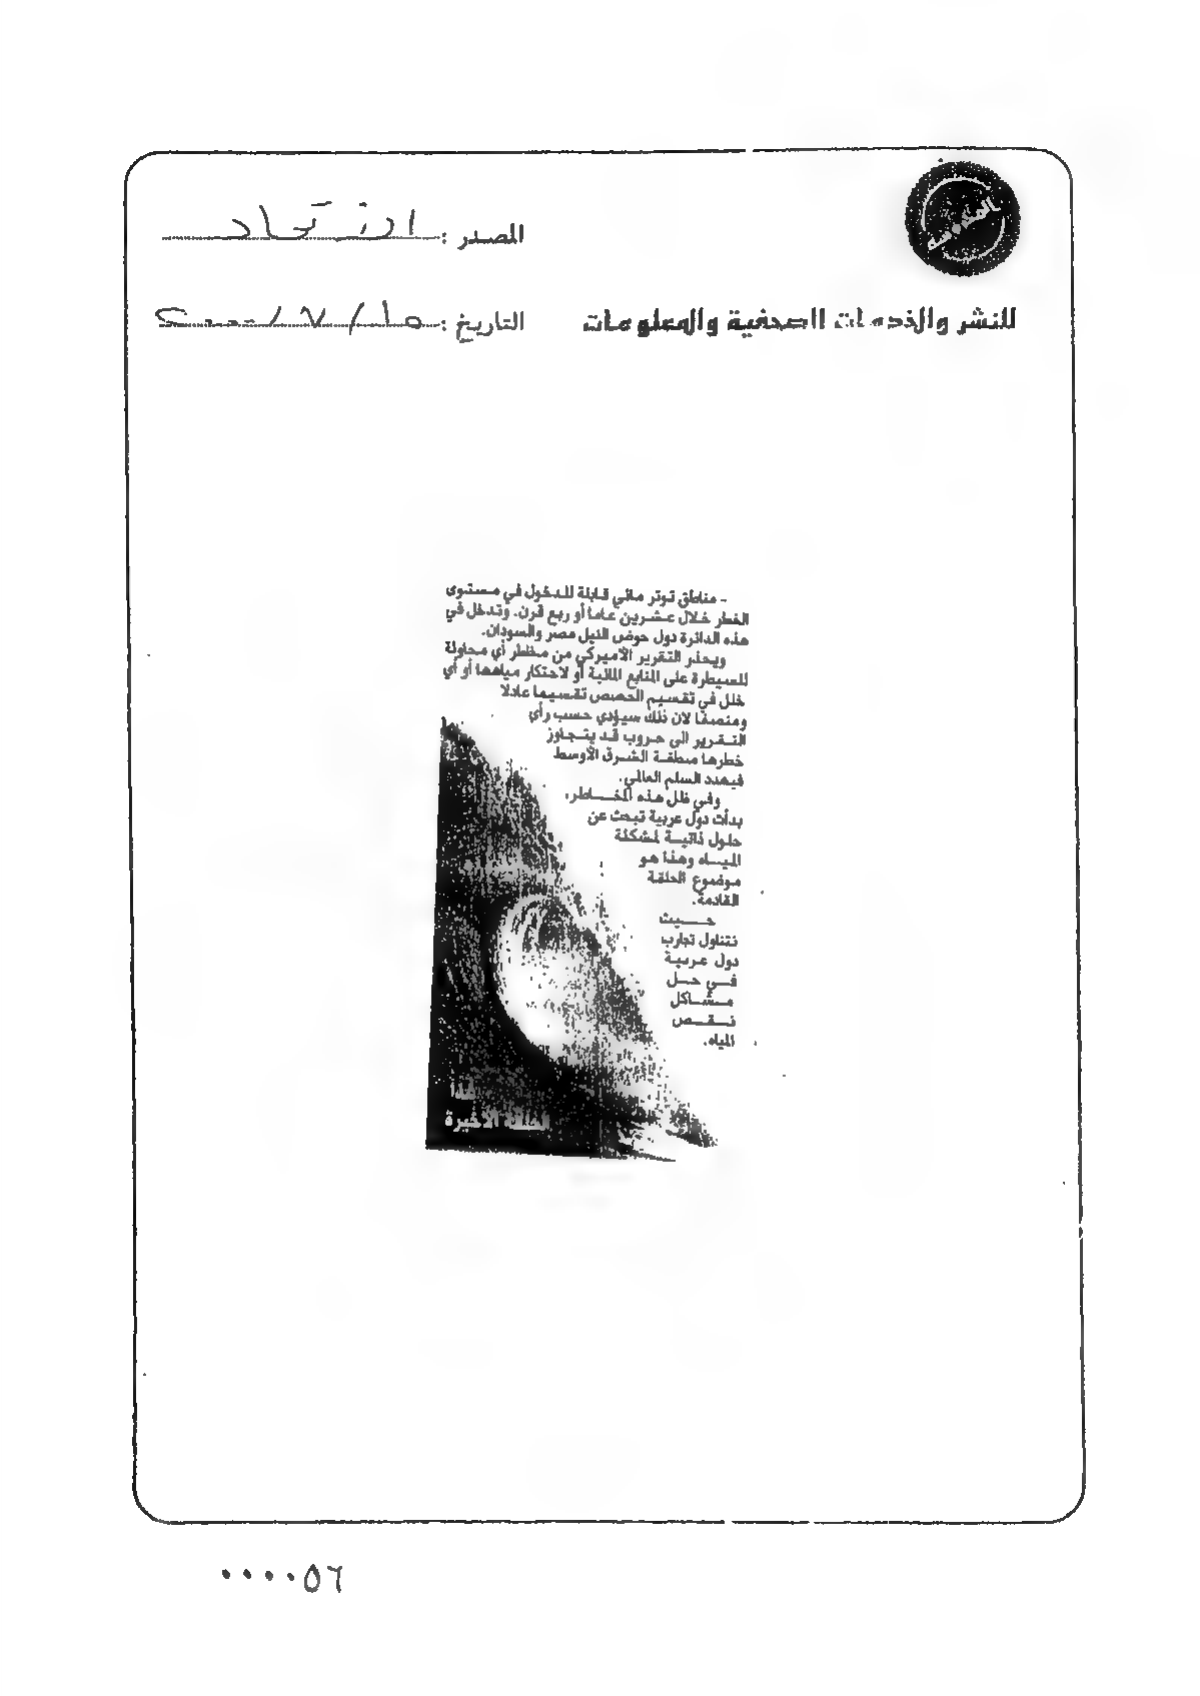 المصدر : الاتحاد
للنشر والخدمات الصحفية والمعلومات
التاريخ : ١٥ / ٧ / ٢٠٠٠
- مناطق توتر مائي قابلة للدخول في مستوى
الخطر خلال عشرين عاما أو ربع قرن. وتدخل في
هذه الدائرة دول حوض النيل مصر والسودان.
ويحذر التقرير الأميركي من مخاطر أي محاولة
للسيطرة على المنابع المائية أو لاحتكار مياهها أو أي
خلل في تقسيم الحصص تقسيما عادلا
ومنصفا لان ذلك سيؤدي حسب رأي
التقرير الى حروب قد يتجاوز
خطرها منطقة الشرق الأوسط
فيهدد السلم العالمي.
وفي ظل هذه المخاطر،
بدأت دول عربية تبحث عن
حلول ذاتية لمشكلة
المياه وهذا هو
موضوع الحلقة
القادمة.
حيث
نتناول تجارب
دول عربية
في حل
مشاكل
نقص
المياه.
غدا
الحلقة الأخيرة
٠٠٠٠٥٦